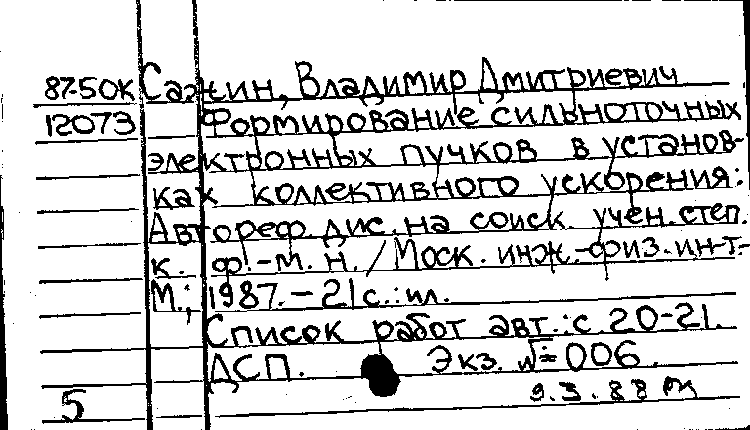 87-50К Сажин, Владимир Дмитриевич
12073 Формирование сильноточных
электронных пучков в установ-
ках коллективного ускорения:
Автореф. дис. на соиск. учен. степ.
к. ф.-м. н. / Моск. инж.-физ. ин-т.-
М.; 1987. - 21 с.: ил.
Список работ авт.: с 20-21.
ДСП. Экз. № 006.
9.3.88
5